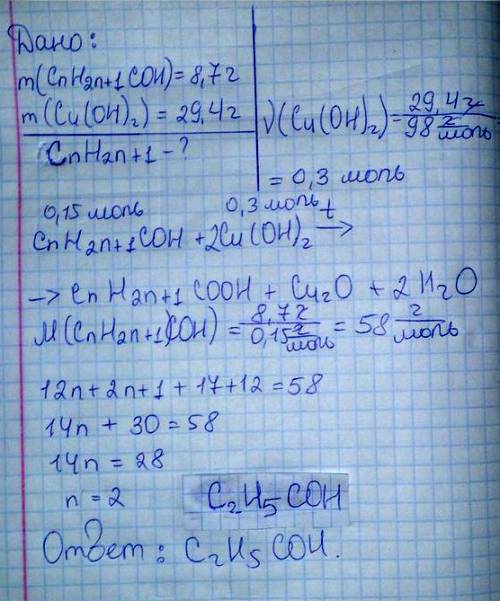 Дано:
m(CnH2n+1COH)=8,7г
m(Cu(OH)2)=29,4г
CnH2n+1-?
ν(Cu(OH)2)=29,4г/98 г/моль
=0,3 моль
0,15 моль 0,3 моль t
CnH2n+1COH+2Cu(OH)2→
→CnH2n+1COOH+Cu2O+2H2O
M(CnH2n+1COH)=8,7г/0,15 моль=58 г/моль
12n+2n+1+17+12=58
14n+30=58
14n=28
n=2 C2H5COH
Ответ: C2H5COH.